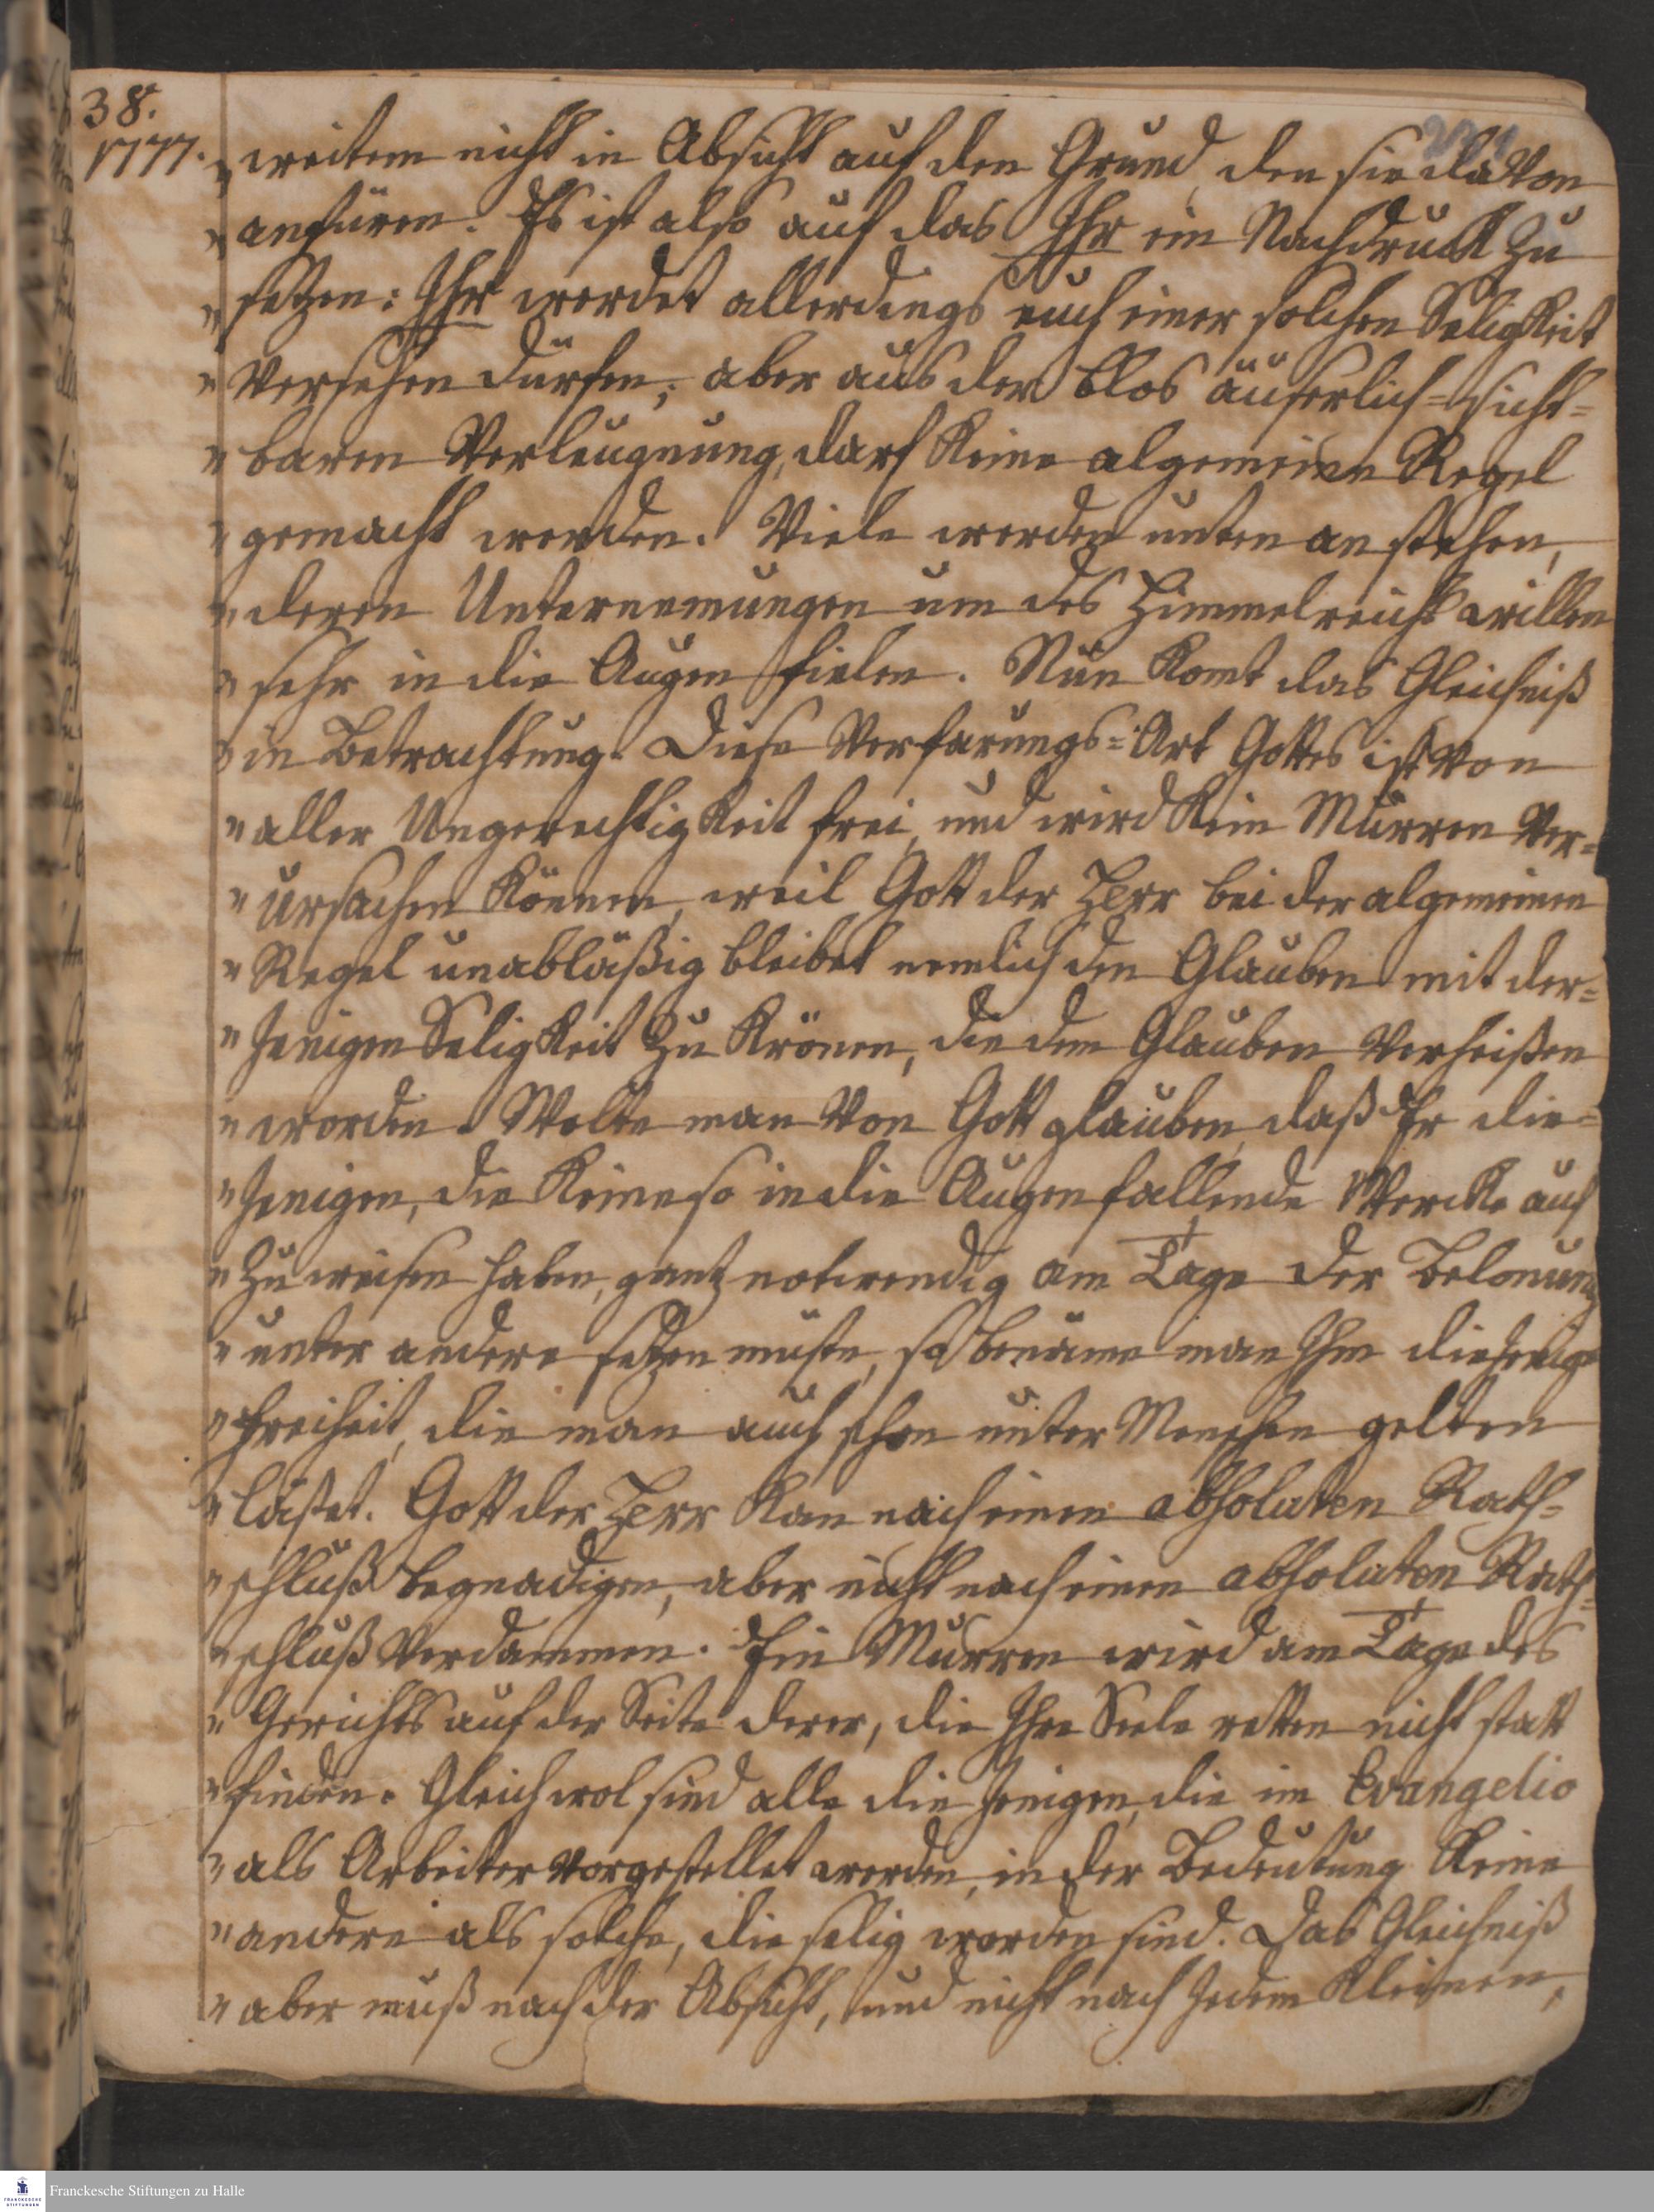 38.
1777.
„ weitem nicht in Absicht auf den Grund, den sie davon
„ anfüren. Es ist also auf das Ihr ein Nachdruck zu
„ setzen: Ihr werdet allerdings euch einer solchen Seligkeit
„ versehen dürfen; aber aus der blos äuserlich=sicht=
„ baren Verleugnung, darf keine algemeine Regel
„ gemacht werden. Viele werden unten an stehen,
„ deren Unternemungen um des Himmelreichs willen
„ sehr in die Augen fielen. Nun komt das Gleichniß
„ in Betrachtung. Diese Verfarungs=Art Gottes ist von
„ aller Ungerechtigkeit frei, und wird kein Murren ver=
„ ursachen können, weil Gott der Herr bei der algemeinen
„ Regel unabläßig bleibet nemlich den Glauben mit der=
„ jenigen Seligkeit zu krönen, die dem Glauben verheißen
„ worden. Wolte man von Gott glauben, daß Er die=
„ jenigen, die keine so in die Augen fallende Wercke auf
„ zu weisen haben, gantz notwendig am Tage der Belonung
„ unter andere setzen müste, so benäme man Ihm diejenige
„ Freiheit, die man auch schon unter Menschen gelten
„ läßet. Gott der Herr kan nach einen absoluten Rath=
„ schluß begnadigen, aber nicht nach einen absoluten Rath=
„ schluß verdammen. Ein Murren wird am Tage des
„ Gerichts auf der Seite derer, die Ihre Seele retten nicht statt
„ finden. Gleichwol sind alle die jenigen, die im Evangelio
„ als Arbeiter vorgestellet werden, in der Bedeutung keine
„ andere als solche, die selig worden sind. Das Gleichniß
„ aber muß nach der Absicht, und nicht nach jedem kleinen,
Franckesche Stiftungen zu Halle